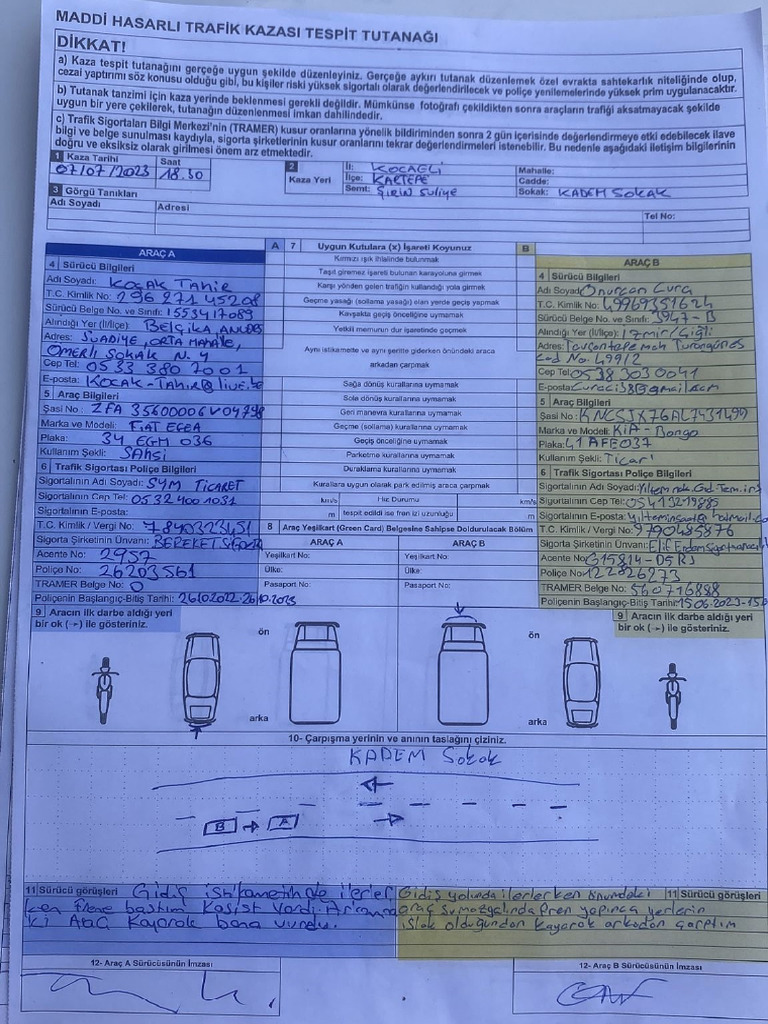 MADDİ HASARLI TRAFİK KAZASI TESPİT TUTANAĞI
DİKKAT!
a) Kaza tespit tutanağını gerçeğe uygun şekilde düzenleyiniz. Gerçeğe aykırı tutanak düzenlemek özel evrakta sahtekarlık niteliğinde olup,
cezai yaptırımı söz konusu olduğu gibi, bu kişiler riski yüksek sigortalı olarak değerlendirilecek ve poliçe yenilemelerinde yüksek prim uygulanacaktır.
b) Tutanak tanzimi için kaza yerinde beklenmesi gerekli değildir. Mümkünse fotoğrafı çekildikten sonra araçların trafiği aksatmayacak şekilde
uygun bir yere çekilerek, tutanağın düzenlenmesi imkan dahilindedir.
c) Trafik Sigortaları Bilgi Merkezi'nin (TRAMER) kusur oranlarına yönelik bildiriminden sonra 2 gün içerisinde değerlendirmeye etki edebilecek ilave
bilgi ve belge sunulması kaydıyla, sigorta şirketlerinin kusur oranlarını tekrar değerlendirmeleri istenebilir. Bu nedenle aşağıdaki iletişim bilgilerinin
doğru ve eksiksiz olarak girilmesi önem arz etmektedir.
1 Kaza Tarihi Saat
07/07/2023 18.30
2 Kaza Yeri
İl: KOCAELİ
İlçe: KARTEPE
Semt: ŞİRİN Suliye
Mahalle:
Cadde:
Sokak: KADEM SOKAK
3 Görgü Tanıkları
Adı Soyadı Adresi Tel No:
ARAÇ A
4 Sürücü Bilgileri
Adı Soyadı: KOÇAK Tahir
T.C. Kimlik No: 29627145208
Sürücü Belge No. ve Sınıfı: 1553417089
Alındığı Yer (İl/İlçe): BELÇİKA,
Adres: SUADİYE, ORTA MAHALLE,
ÖMERLİ SOKAK N. 4
Cep Tel: 0533 380 7001
E-posta: KOCAK-TAHIR@live.be
5 Araç Bilgileri
Şasi No: ZFA 35600006V04798
Marka ve Modeli: FİAT EGEA
Plaka: 34 EGM 036
Kullanım Şekli: ŞAHSİ
6 Trafik Sigortası Poliçe Bilgileri
Sigortalının Adı Soyadı: SYM TİCARET
Sigortalının Cep Tel: 0532 400 1031
Sigortalının E-posta:
T.C. Kimlik / Vergi No: 7840323451
Sigorta Şirketinin Ünvanı: BEREKET SİGORTA
Acente No: 2957
Poliçe No: 26203561
TRAMER Belge No: 0
Poliçenin Başlangıç-Bitiş Tarihi: 26.10.2022-26.10.2023
9 Aracın ilk darbe aldığı yeri
bir ok (→) ile gösteriniz.
A 7 Uygun Kutulara (x) İşareti Koyunuz B
Kırmızı ışık ihlalinde bulunmak
Taşıt giremez işareti bulunan karayoluna girmek
Karşı yönden gelen trafiğin kullandığı yola girmek
Geçme yasağı (sollama yasağı) olan yerde geçiş yapmak
Kavşakta geçiş önceliğine uymamak
Yetkili memurun dur işaretinde geçmek
Aynı istikamette ve aynı şeritte giderken önündeki araca
arkadan çarpmak
Sağa dönüş kurallarına uymamak
Sola dönüş kurallarına uymamak
Geri manevra kurallarına uymamak
Geçme (sollama) kurallarına uymamak
Geçiş önceliğine uymamak
Parketme kurallarına uymamak
Duraklama kurallarına uymamak
Kurallara uygun olarak park edilmiş araca çarpmak
km/s Hız Durumu km/s
m tespit edildi ise fren izi uzunluğu m
8 Araç Yeşilkart (Green Card) Belgesine Sahipse Doldurulacak Bölüm
ARAÇ A ARAÇ B
Yeşilkart No: Yeşilkart No:
Ülke: Ülke:
Pasaport No: Pasaport No:
ARAÇ B
4 Sürücü Bilgileri
Adı Soyadı: Onurcan Cura
T.C. Kimlik No: 49969351624
Sürücü Belge No. ve Sınıfı: 3947-B
Alındığı Yer (İl/İlçe): İzmir/Çiğli
Adres:
Cad No: 499/2
Cep Tel: 0538 303 0041
E-posta:
5 Araç Bilgileri
Şasi No: KNCSJX76AL7431499
Marka ve Modeli: KİA - Bongo
Plaka: 41 AFE 037
Kullanım Şekli: Ticari
6 Trafik Sigortası Poliçe Bilgileri
Sigortalının Adı Soyadı:
Sigortalının Cep Tel:
Sigortalının E-posta:
T.C. Kimlik / Vergi No: 9790485876
Sigorta Şirketinin Ünvanı:
Acente No:
Poliçe No: 122826273
TRAMER Belge No: 560716888
Poliçenin Başlangıç-Bitiş Tarihi: 15.06.2023-15.0
9 Aracın ilk darbe aldığı yeri
bir ok (→) ile gösteriniz.
ön ön
arka arka
10- Çarpışma yerinin ve anının taslağını çiziniz.
KADEM Sokak
B A
11 Sürücü görüşleri Gidiş istikametinde ilerler
ken frene bastım Kasist Vardı Arkamda
ki Araç Kayarak bana vurdu.
11 Sürücü görüşleri
Gidiş yolunda ilerlerken önümdeki
araç fren yapınca yerlerin
ıslak olduğundan kayarak arkadan çarptım
12- Araç A Sürücüsünün İmzası 12- Araç B Sürücüsünün İmzası